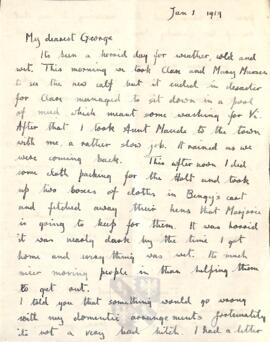 Jan 1 1919
My dearest George
Its been a horrid day for weather, cold and
wet. This morning we took Clare and Mary
to see the new calf but it ended in disaster
for Clare managed to sit down in a pool
of mud which meant some washing for Vi.
After that I took Aunt Maude to the town
with me, a rather slow job. It rained as we
were coming back. This afternoon I did
some cloth packing for the Holt and took
up two boxes of clothes in Bengy's cart
and fetched away their hens that Marjorie
is going to keep for them. It was horrid
it was nearly dark by the time I got
home and everything was wet. Its much
nicer moving people in than helping them
to get out.
I told you that something would go wrong
with my domestic arrangements fortunately
its not a very bad hitch. I had a letter